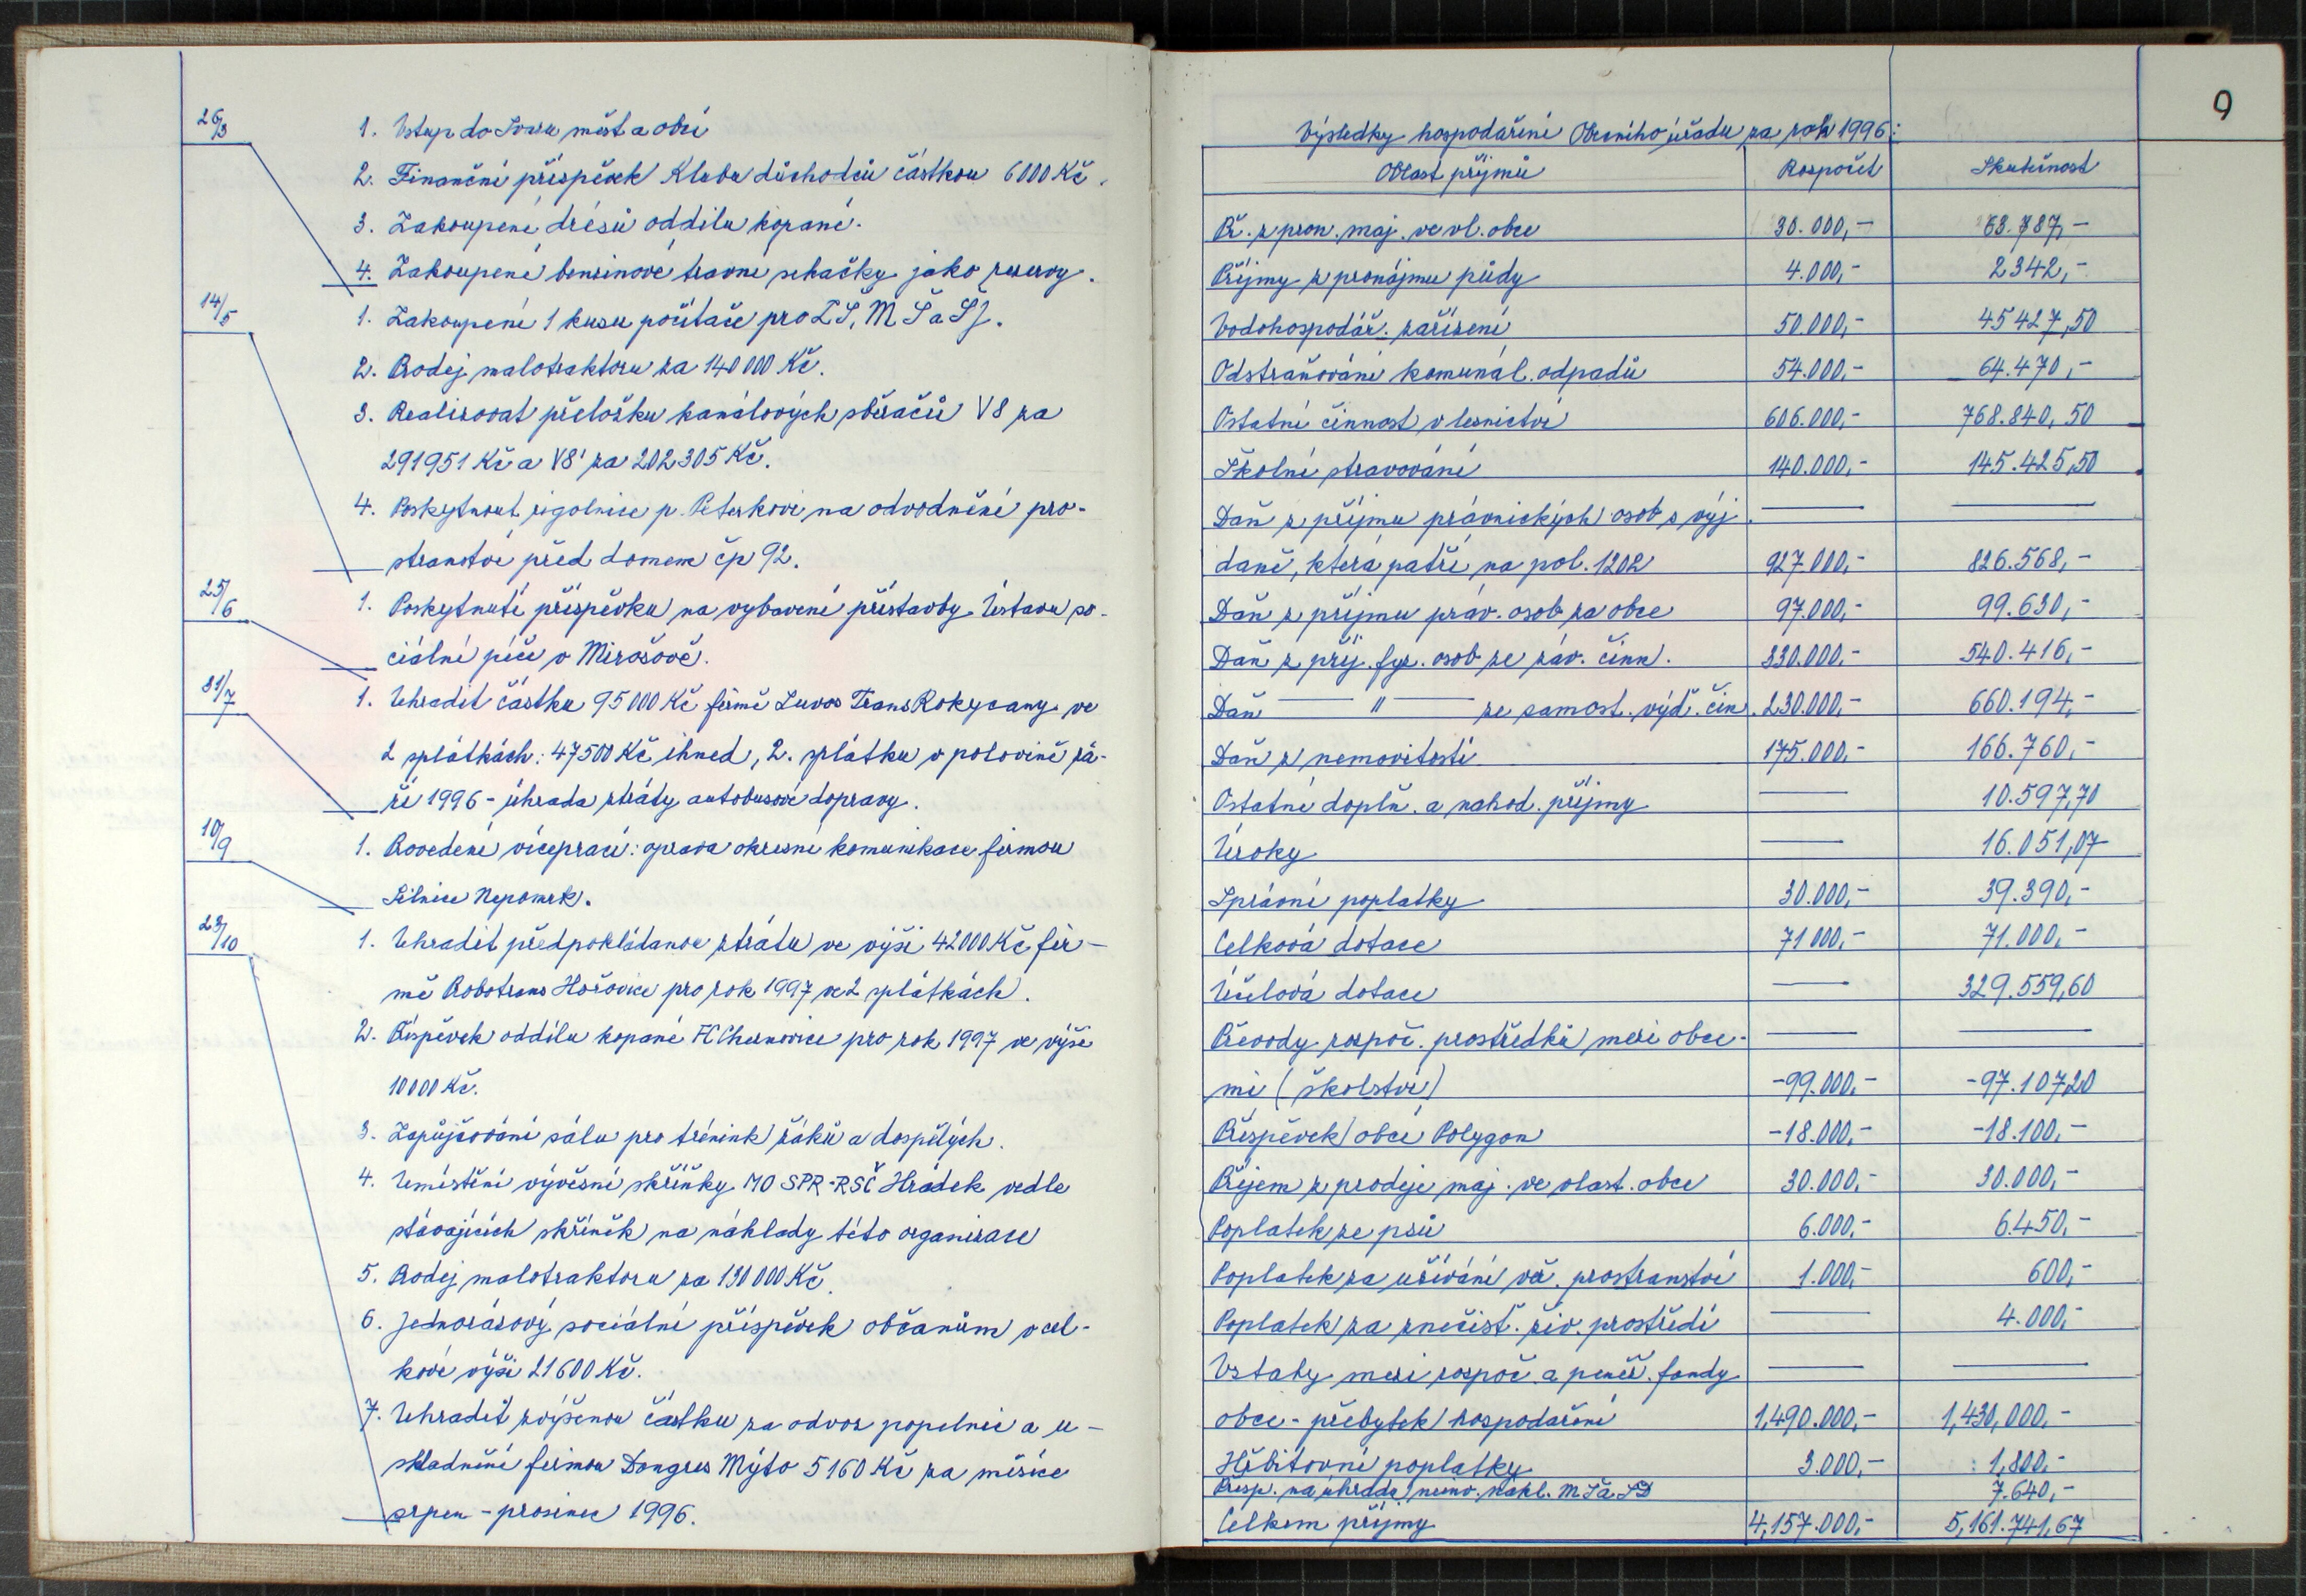 26/3
1. Vstup do Svazu měst a obcí
2. Finanční příspěvek Klubu důchodců částkou 6000 Kč.
3. Zakoupení dresů oddílu kopané.
4. Zakoupení benzinové travní sekačky jako rezervy.
14/5
1. Zakoupení 1 kusu počítače pro ZŠ, MŠ a ŠJ.
2. Prodej malotraktoru za 140 000 Kč.
3. Realizovat přeložku kanálových sběračů V8 za
291951 Kč a V8' za 202305 Kč.
4. Poskytnout rigolnice p. Peterkovi na odvodnění pro-
stranství před domem čp 92.
25/6
1. Poskytnutí příspěvku na vybavení přístavby Ústavu so-
ciální péče v Mirošově.
31/7
1. Uhradit částku 95000 Kč firmě Luvos Trans Rokycany ve
2 splátkách: 47500 Kč ihned, 2. splátku v polovině zá-
ří 1996 - úhrada ztráty autobusové dopravy.
10/9
1. Provedení víceprací: oprava okresní komunikace firmou
Silnice Nepomuk.
23/10
1. Uhradit předpokládanou ztrátu ve výši 42000 Kč fir-
mě Probotrans Hořovice pro rok 1997 ve 2 splátkách.
2. Příspěvek oddílu kopané FC Cheznovice pro rok 1997 ve výši
10000 Kč.
3. Zapůjčování sálu pro trénink žáků a dospělých.
4. Umístění vývěsní skříňky MO SPR-RSČ Hrádek vedle
stávajících skříněk na náklady této organizace
5. Prodej malotraktoru za 130 000 Kč.
6. Jednorázový sociální příspěvek občanům v cel-
kové výši 21600 Kč.
7. Uhradit zvýšenou částku za odvoz popelnic a u-
skladnění firmou Dongres Mýto 5160 Kč za měsíce
srpen - prosinec 1996.
9
Výsledky hospodaření Obecního úřadu za rok 1996:
Oblast příjmů Rozpočet Skutečnost
Př. z pron. maj. ve vl. obce 30.000,- 63.787,-
Příjmy z pronájmu půdy 4.000,- 2342,-
Vodohospodář. zařízení 50.000,- 45427,50
Odstraňování komunál. odpadů 54.000,- 64.470,-
Ostatní činnost v lesnictví 606.000,- 768.840,50
Školní stravování 140.000,- 145.425,50
Daň z příjmu právnických osob s výj.
daně, která patří na pol. 1202 927.000,- 826.568,-
Daň z příjmu práv. osob za obce 97.000,- 99.630,-
Daň z příj. fyz. osob ze záv. činn. 330.000,- 540.416,-
Daň — " — ze samost. výd. čin. 230.000,- 660.194,-
Daň z nemovitosti 175.000,- 166.760,-
Ostatní doplň. a nahod. příjmy — 10.597,70
Úroky — 16.051,07
Správní poplatky 30.000,- 39.390,-
Celková dotace 71 000,- 71.000,-
Účelová dotace — 329.559,60
Převody rozpoč. prostředků mezi obce- — —
mi (školství) -99.000,- -97.107,20
Příspěvek obcí Polygon -18.000,- -18.100,-
Příjem z prodeje maj. ve vlast. obce 30.000,- 30.000,-
Poplatek ze psů 6.000,- 6.450,-
Poplatek za užívání veř. prostranství 1.000,- 600,-
Poplatek za znečišť. živ. prostředí — 4.000,-
Vztahy mezi rozpoč. a peněž. fondy — —
obce - přebytek hospodaření 1,490.000,- 1,430,000,-
Hřbitovní poplatky 3.000,- 1,800,-
Přísp. na úhradu neinv. nákl. MŠ a ŠD 7.640,-
Celkem příjmy 4,157.000,- 5,161.741,67